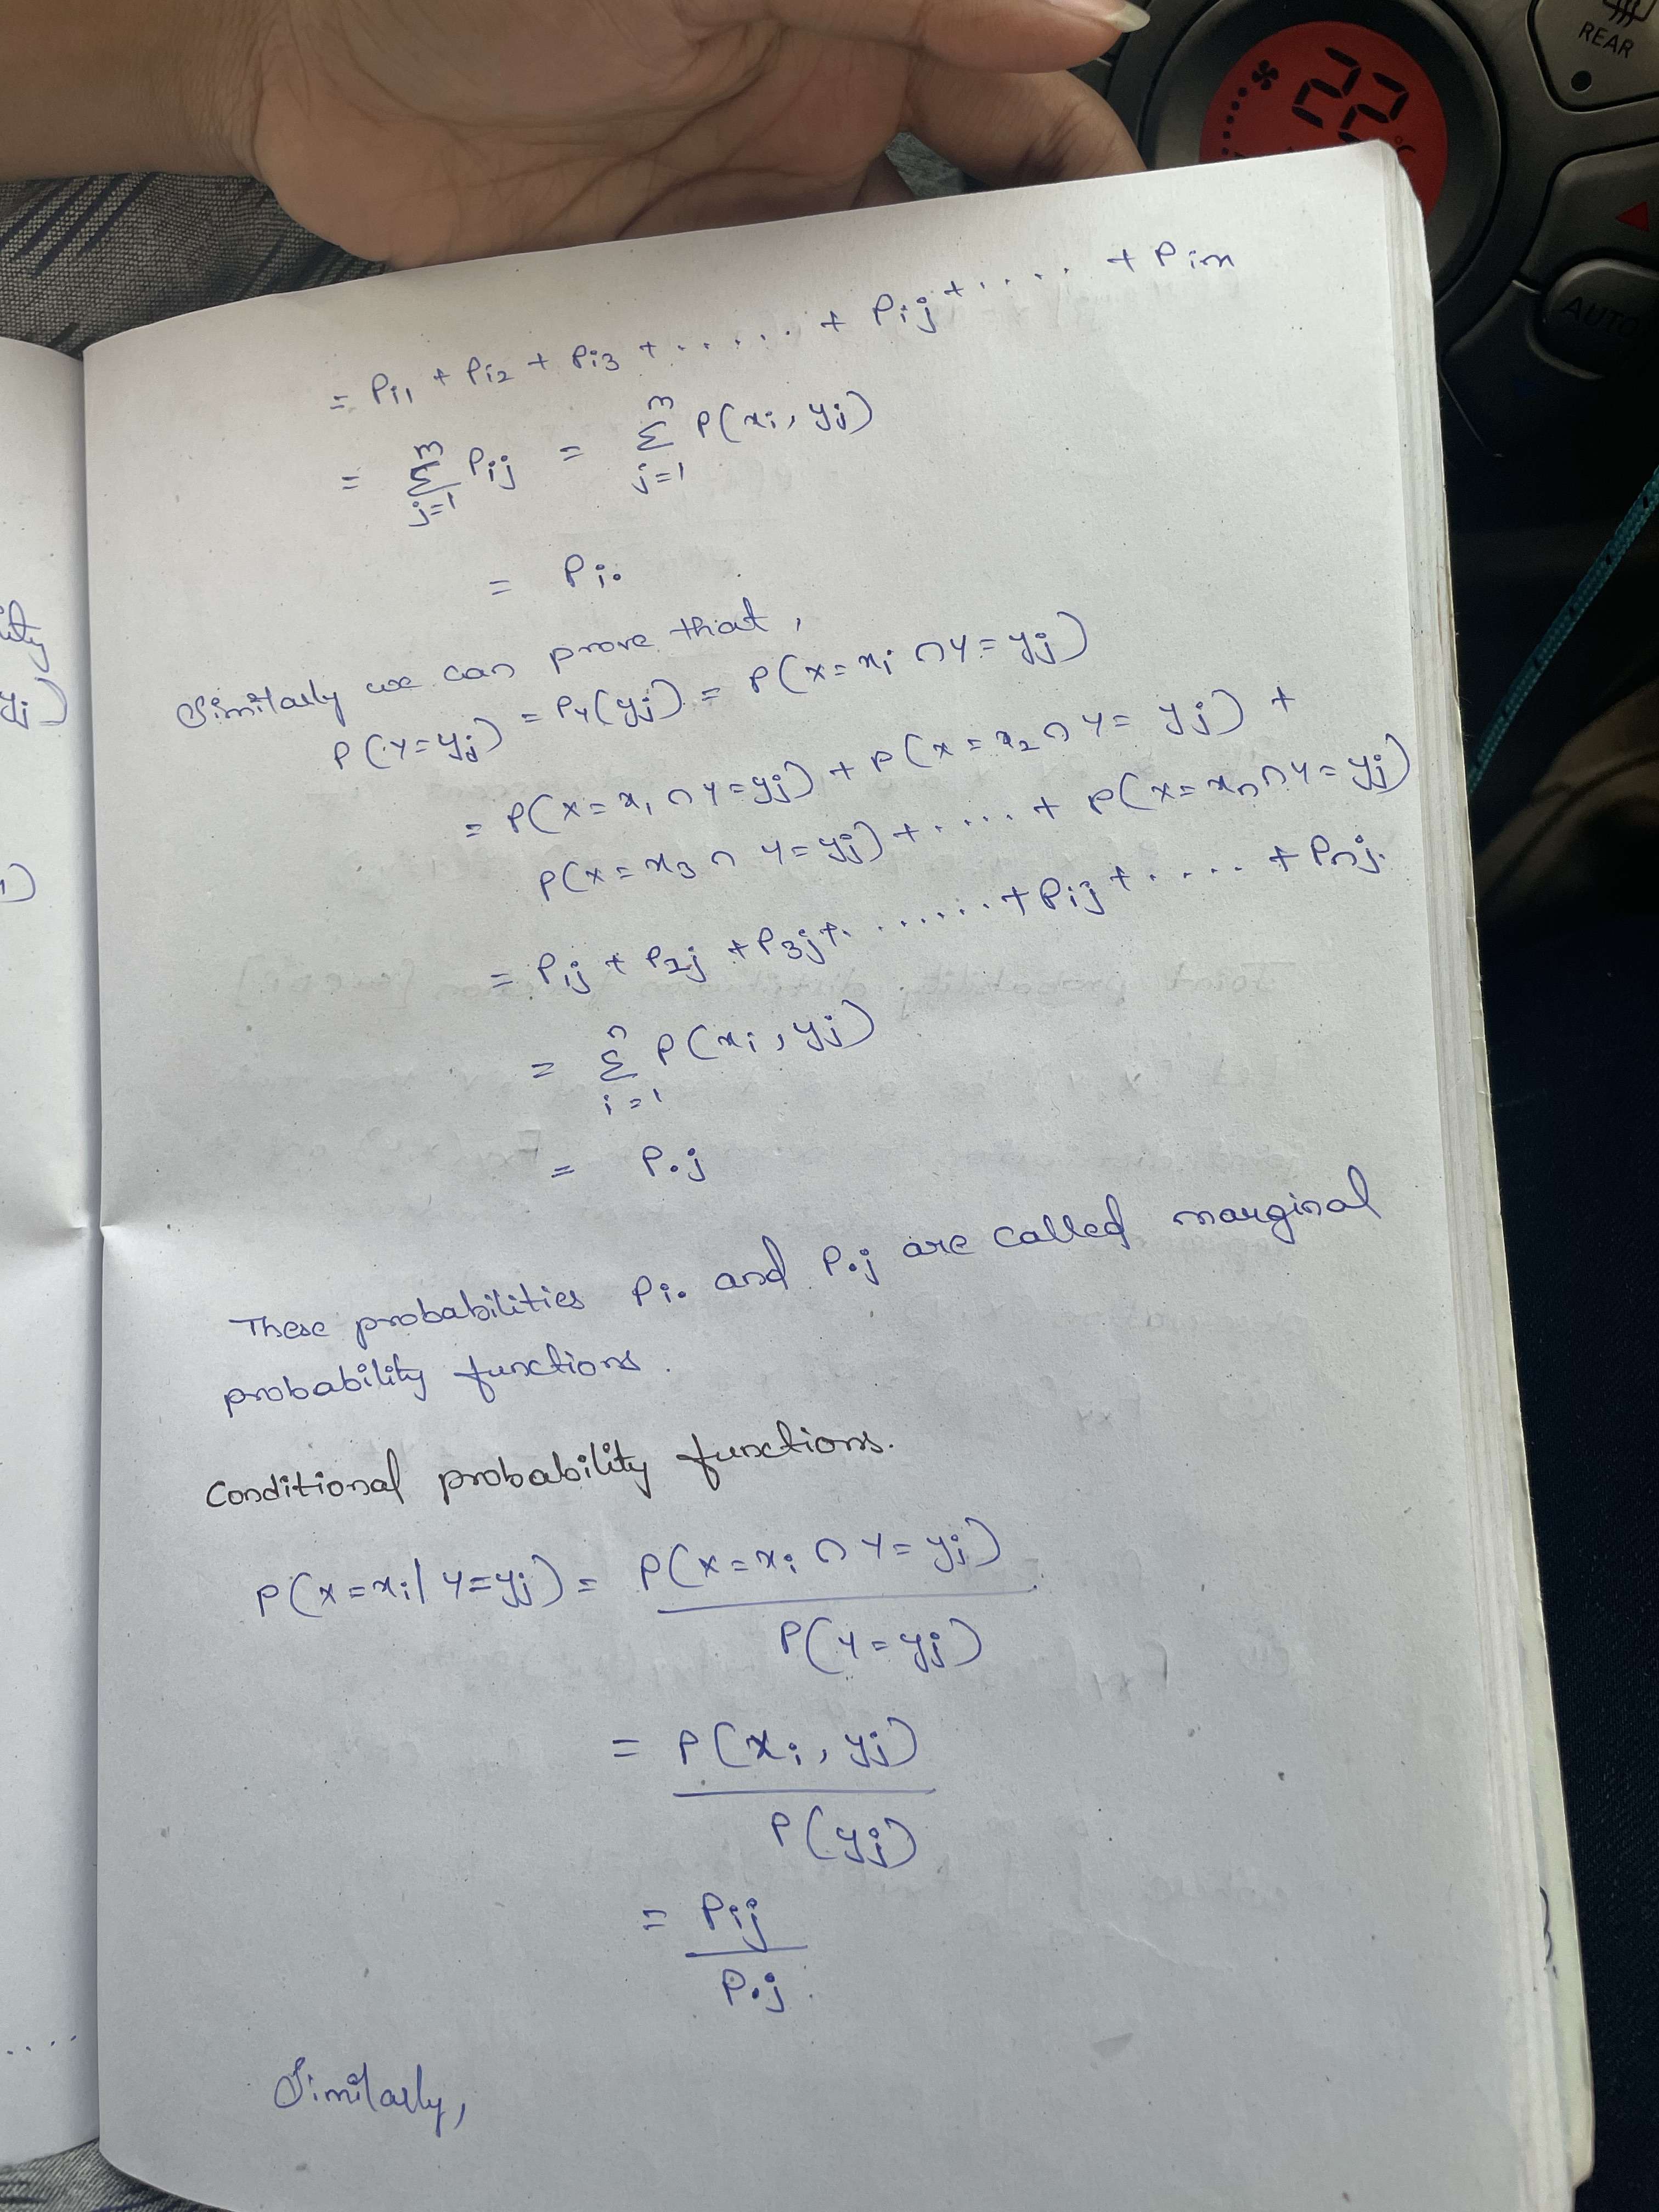 REAR
22
°C
AUTO
= Pi1 + Pi2 + Pi3 + ...... + Pij + .... + Pim
= m Σ j=1 Pij = m Σ j=1 P(xi, yj)
= Pi.
Similarly we can prove that,
P(Y=yj) = PY(yj) = P(X=xi ∩ Y=yj)
= P(X=x1 ∩ Y=yj) + P(X=x2 ∩ Y=yj) +
P(X=x3 ∩ Y=yj) + .... + P(X=xn ∩ Y=yj)
= Pij + P2j + P3j + ....... + Pij + .... + Pnj.
= n Σ i=1 P(xi, yj)
= P.j
These probabilities Pi. and P.j are called marginal
probability functions.
Conditional probability functions.
P(X=xi | Y=yj) = P(X=xi ∩ Y=yj)
P(Y=yj)
= P(xi, yj)
P(yj)
= Pij
P.j
Similarly,